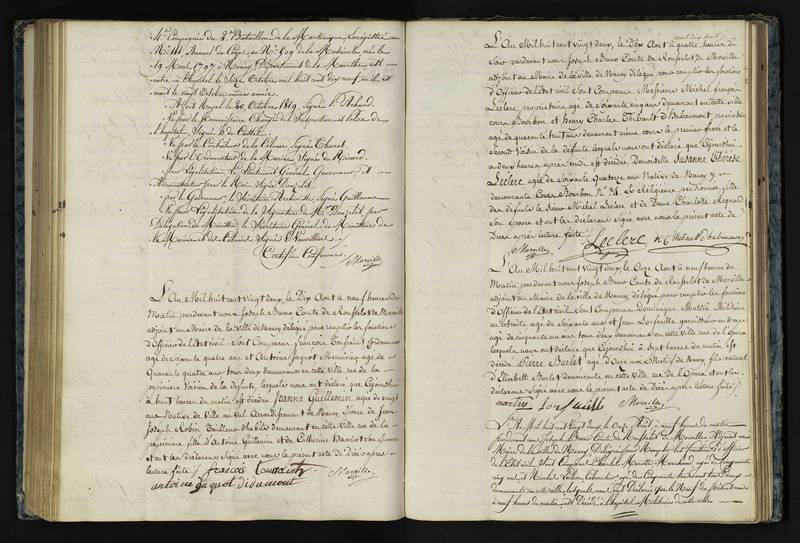 4e Compagnie du 2e Bataillon de la Martinique Enregistré au
No 111 Annuel du Corps, au No 509 de la Matricule, né le
19 Avril 1797 à Nancy, Département de la Meurthe est
entré à l'hôpital le Octobre mil huit cent dix neuf où il est
mort le Octobre même année.
Fort Royal le 20 Octobre 1819, Signé
Vu par le Commissaire Chargé de l'Inspection et Police de
l'hôpital, Signé
Vu par le Contrôleur de la Colonie, Signé
Vu par l'Ordonnateur de la Marine, Signé de Ricard.
pour Légalisation, Le Lieutenant Général Gouverneur et
Administrateur pour le Roi, Signé Donzelot.
par le Gouverneur, le Secrétaire Archiviste, Signé Guillaume
Vu pour Légalisation de la Signature de Mr Donzelot, par
Délégation du Ministre, le Secrétaire Général du Ministère de
la Marine et des Colonies, Signé
Certifié Conforme
Morville
L'An Mil huit cent vingt deux, le Dix Aout à neuf heures du
Matin, pardevant nous Joseph Bruno Comte de Rousselot de Morville
adjoint au Maire de la Ville de Nancy délégué pour remplir les fonctions
d'Officier de l'Etat civil, Sont Comparus françois Toussaint Cordonnier
agé de soixante quatre ans et Antoine Jaquot Menuisier agé de
Quarante quatre ans tous deux demeurant en cette Ville rue de la
pépinière Voisins de la défunte, lesquels nous ont déclaré que Cejourd'hui
à huit heures du matin est décédée Jeanne Guillemin agée de vingt
ans Native de Ville au Val arrondissement de Nancy, femme de Jean
Joseph Robin Tailleur d'habits demeurant en cette Ville rue de la
pépinière fille d'Antoine Guillemin et de Catherine Son Epouse
et ont les déclarans Signé avec nous le présent acte de Décès après
lecture faite
francois toussaint
Morville
antoine jaquot didamont
L'An Mil huit cent vingt deux, le Dix Aout à quatre heures du
Soir pardevant nous Joseph Bruno Comte de Rousselot de Morville
adjoint au Maire de la Ville de Nancy délégué pour remplir les fonctions
d'Officier de l'Etat civil Sont Comparus Messieurs Michel françois
Leclerc propriétaire agé de Soixante cinq ans demeurant en cette ville
cours Bourbon et Henry Charles Thibault d'habaumont propriétaire
agé de quarante huit ans demeurant même cours le premier frère et le
Second Voisin de la défunte lesquels nous ont déclaré que Cejourd'hui
à deux heures après midi est décédée Demoiselle Susanne Thérèse
Leclerc agée de Soixante Quatorze ans Native de Nancy y
demeurante Cours Bourbon No , Ex Religieuse pensionnée, fille
des défunts le Sieur Michel Leclerc et de Dame Charlotte Regnard
Son Epouse et ont les déclarans Signé avec nous le présent acte de
Décès après lecture faite
Morville Leclerc H C Thibault d'habaumont
L'An Mil huit cent vingt deux, le Onze Aout à neuf heures du
Matin, pardevant nous Joseph Bruno Comte de Rousselot de Morville
adjoint au Maire de la Ville de Nancy délégué pour remplir les fonctions
d'Officier de l'Etat civil Sont Comparus Dominique Militaire
en retraite agé de Soixante ans et Jean
agé de cinquante un ans tous deux demeurant en cette Ville rue de
lesquels nous ont déclaré que Cejourd'hui à Sept heures du matin est
décédé Pierre Burlet agé de Onze mois Natif de Nancy fils naturel
d'Elisabeth Burlet demeurante en cette Ville rue de et ont les
déclarans Signé avec nous le présent acte de Décès après lecture faite
Morville
L'An Mil huit cent vingt deux, le Onze Aout à neuf heures du matin
pardevant nous Joseph Bruno Comte de Rousselot de Morville Adjoint au
Maire de la Ville de Nancy Délégué pour Remplir les fonctions d'officier
de l'Etat civil, Sont Comparus Charles Marchand agé de Cinquante
cinq ans et Nicolas agé de Cinquante ans tous deux
demeurant en cette ville, lesquels nous ont Déclaré que le Neuf du présent mois
à neuf heures du matin, est Décédé à l'hopital Militaire de cette ville